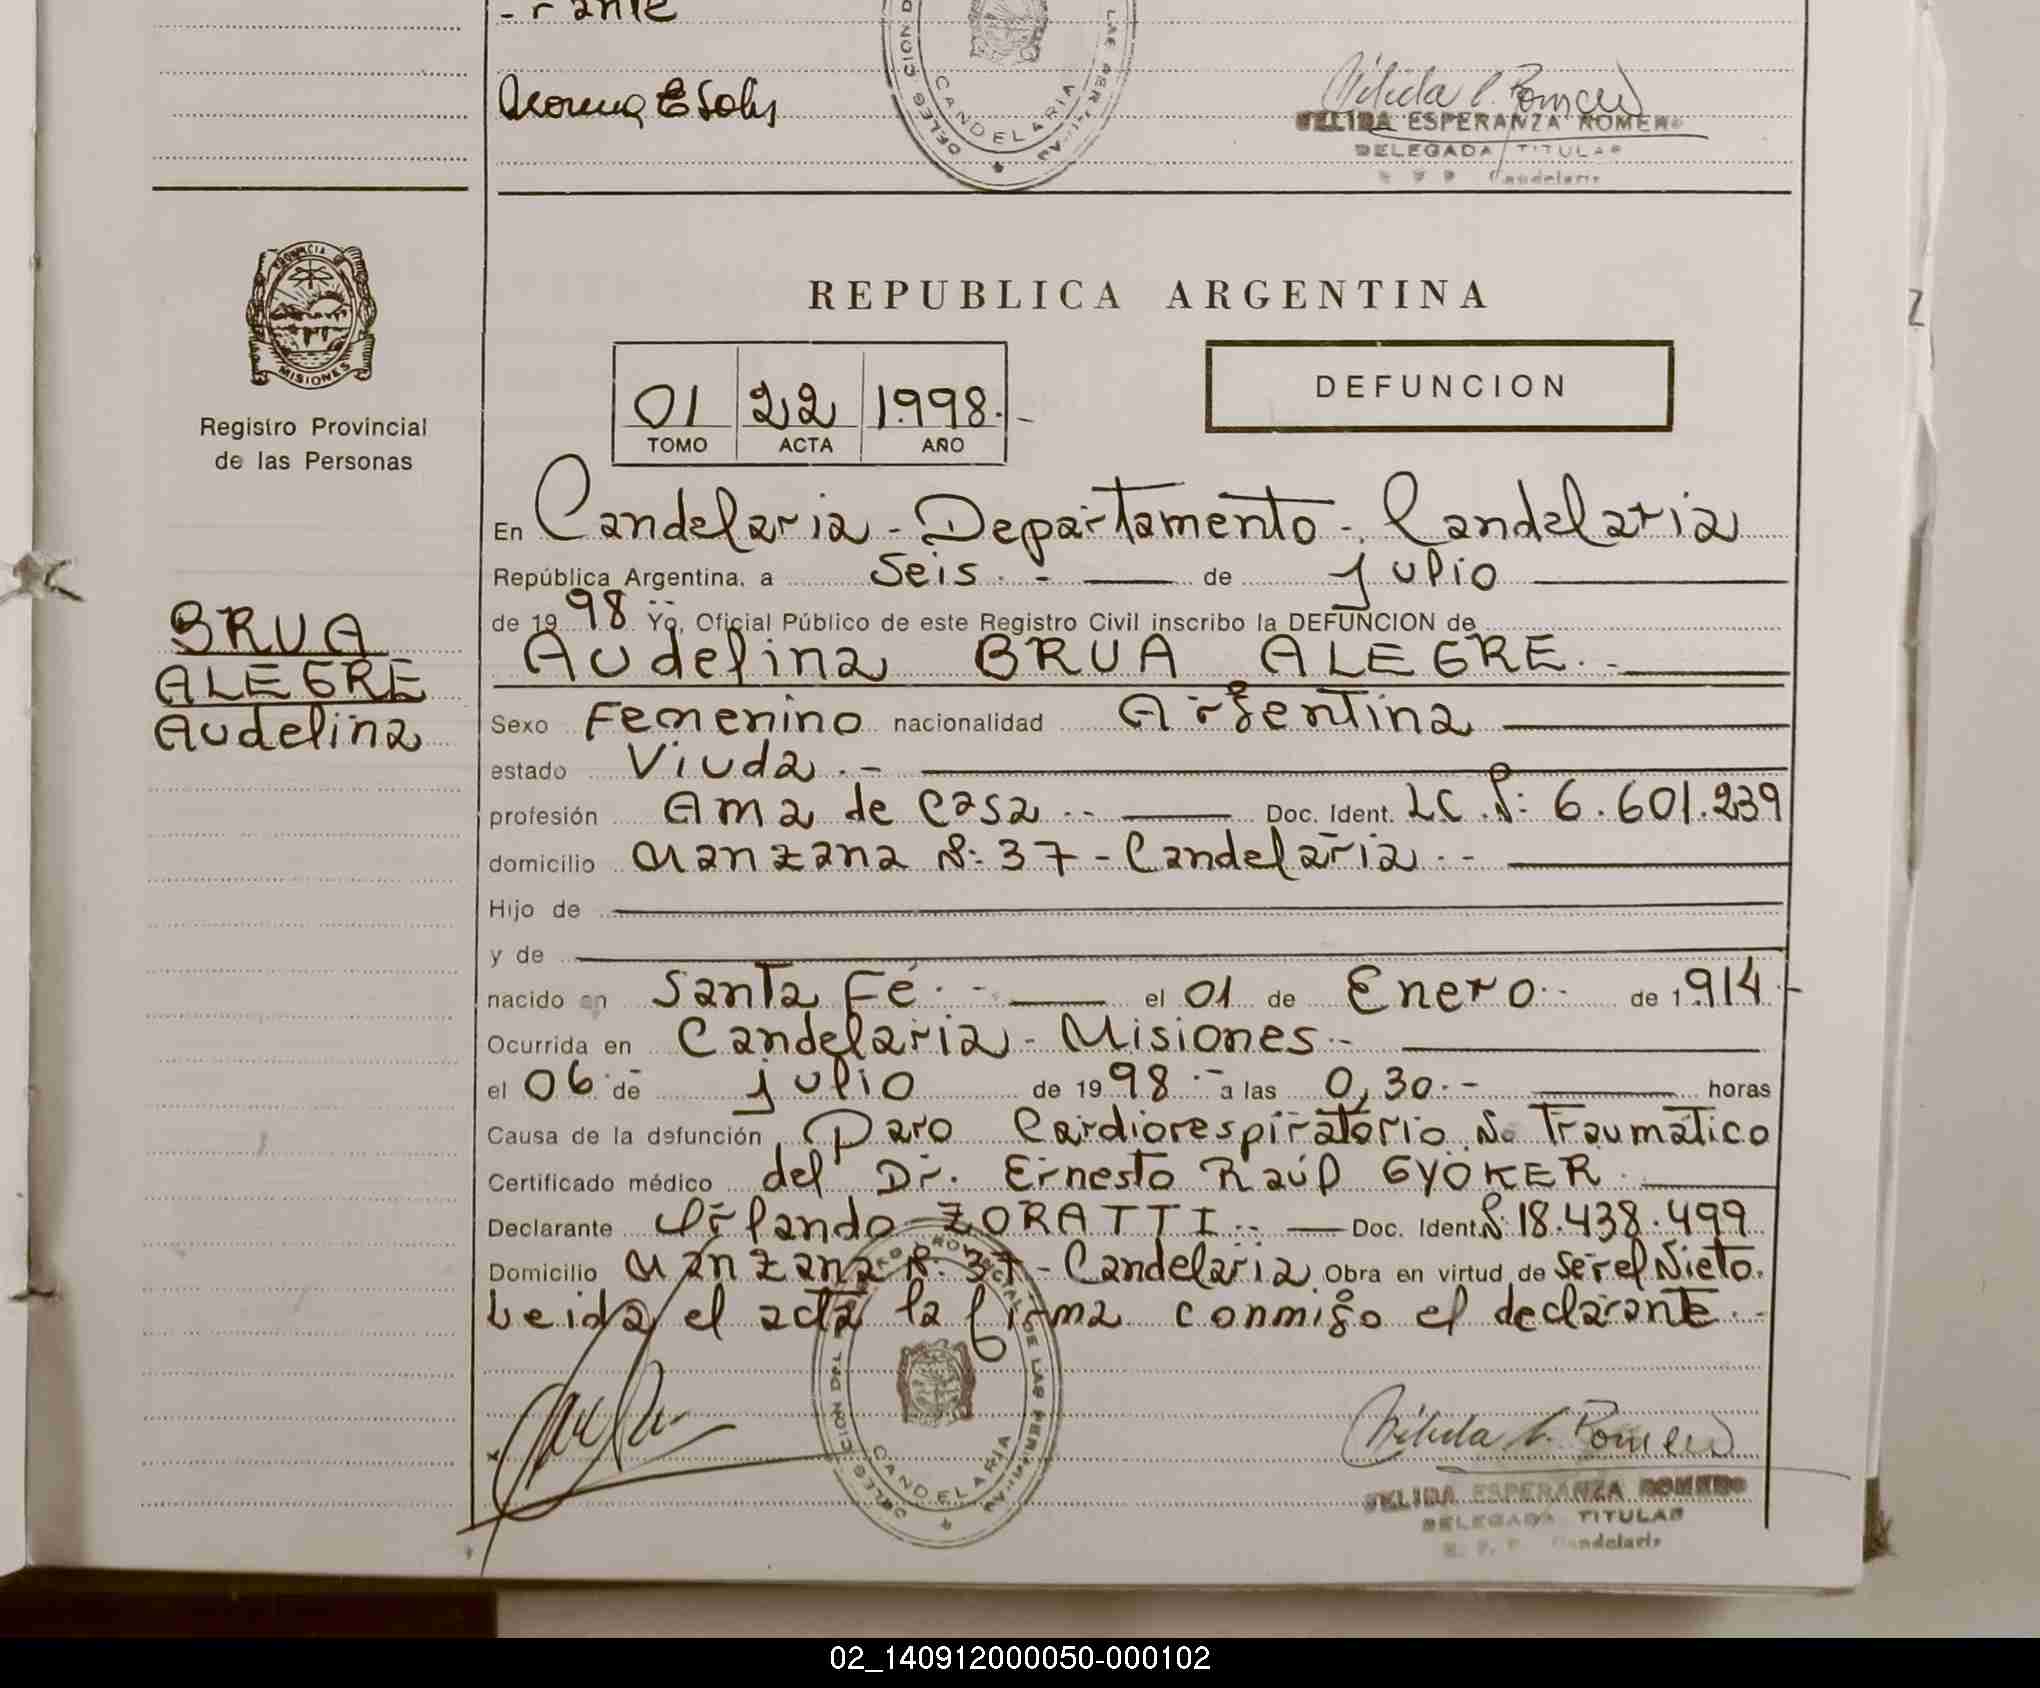 -rante
CANDELARIA
NELIDA ESPERANZA ROMERO
DELEGADA TITULAR
Candelaria
PROVINCIA
MISIONES
Registro Provincial
de las Personas
REPUBLICA ARGENTINA
01 22 1.998.-
TOMO ACTA AÑO
DEFUNCION
En Candelaria - Departamento - Candelaria
República Argentina, a Seis.- de julio
de 19 98 Yo, Oficial Público de este Registro Civil inscribo la DEFUNCION de
BRUA
ALEGRE
Audelina
Audelina BRUA ALEGRE.-
Sexo Femenino nacionalidad Argentina
estado Viuda.-
profesión Ama de Casa.- Doc. Ident. LC.Nº: 6.601.239
domicilio Manzana Nº: 37 - Candelaria.-
Hijo de
y de
nacido en Santa Fé.- el 01 de Enero.- de 1.914.-
Ocurrida en Candelaria - Misiones.-
el 06 de julio de 19 98.- a las 0,30.- horas
Causa de la defunción Paro Cardiorespiratorio No Traumático
Certificado médico del Dr. Ernesto Raúl GYÖKER.
Declarante Orlando ZORATTI.- Doc. Ident. Nº 18.438.499
Domicilio Manzana Nº: 37 - Candelaria Obra en virtud de ser el Nieto.
Leida el acta la firma conmigo el declarante.-
CANDELARIA
NELIDA ESPERANZA ROMERO
DELEGADA TITULAR
R. P. P. Candelaria
02_140912000050-000102